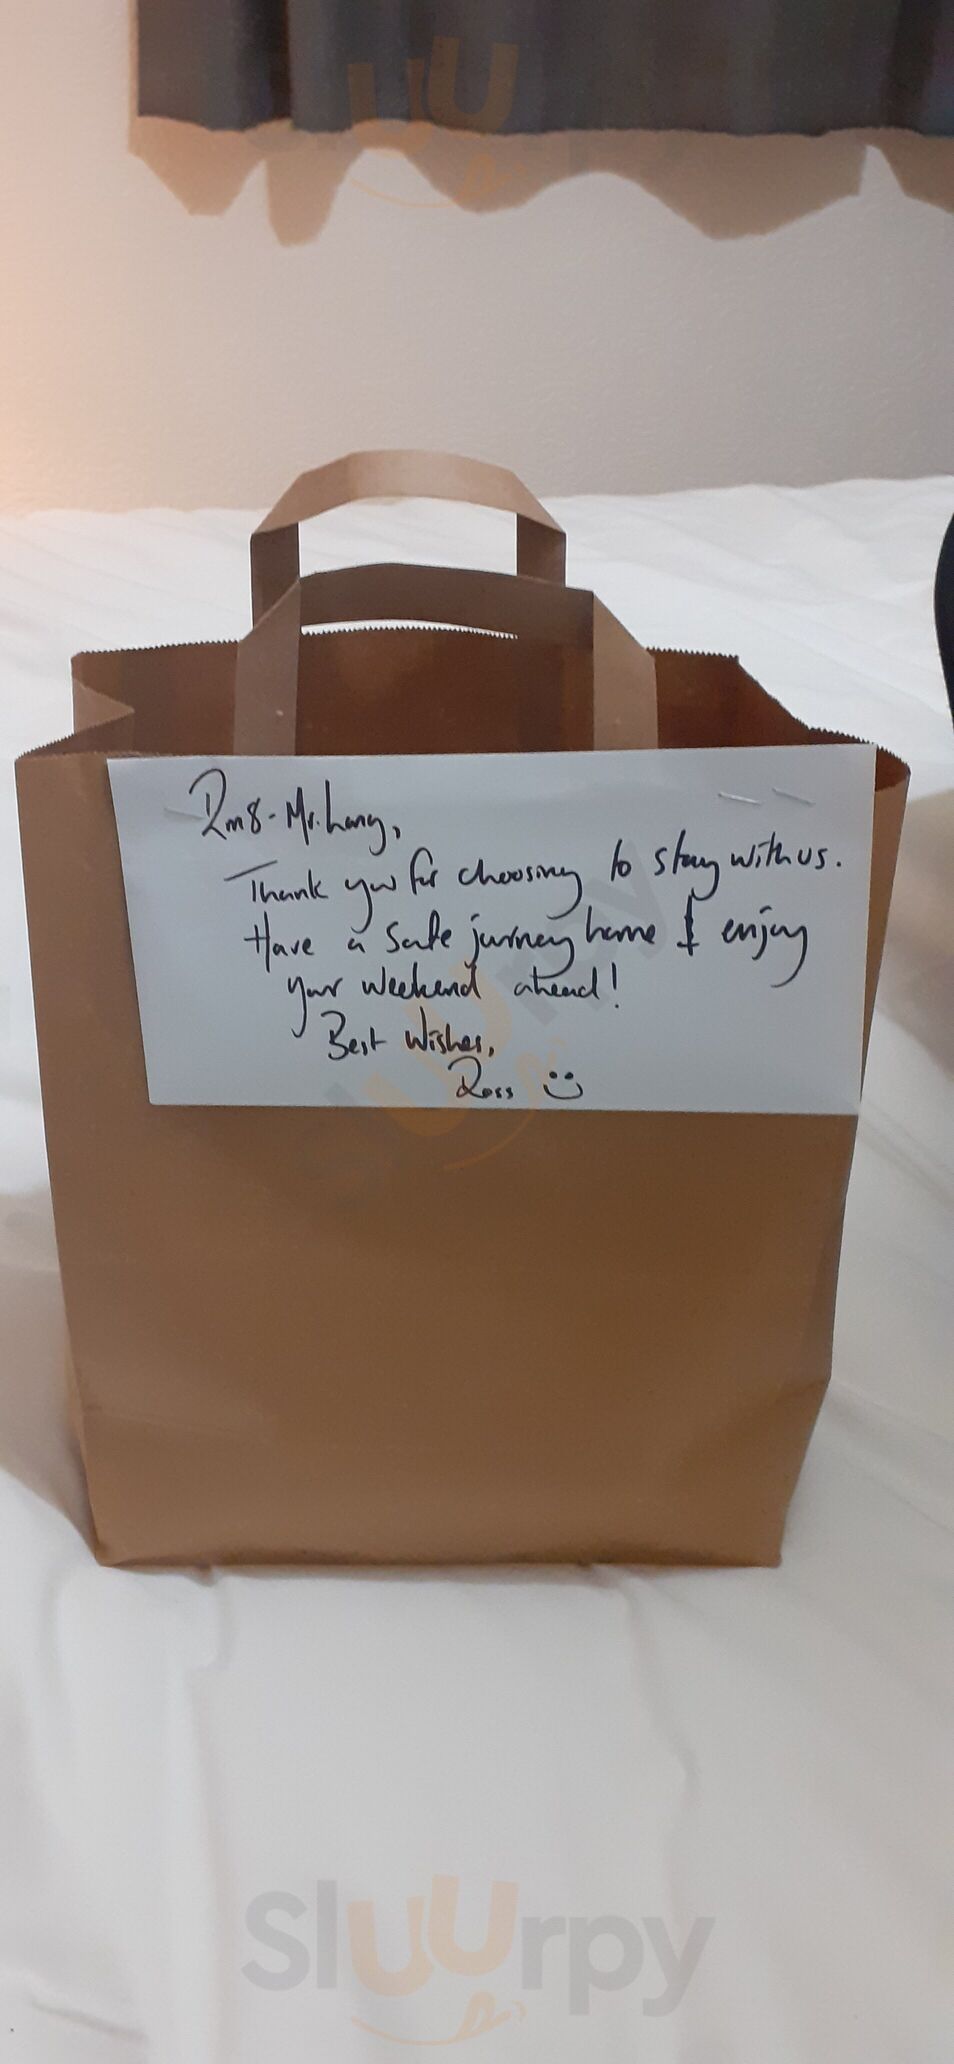 Rm8 - Mr. Lang,
Thank you for choosing to stay with us.
Have a safe journey home & enjoy
your weekend ahead!
Best Wishes,
Ross
Sluurpy
Sluurpy
Sluurpy